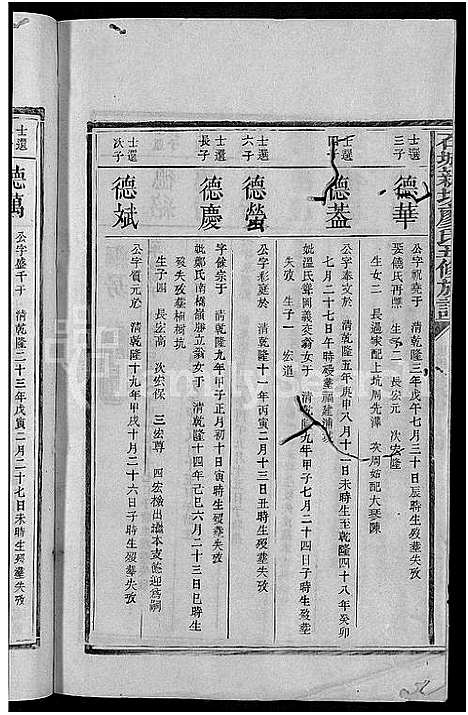 石城新坊廖氏五修族譜
士選
三子
德華
公字視堯于 清乾隆三年戊午七月三十日辰時生殁塟失攷
娶饒氏再熙 生子二 長宏元 次宏隆
生女二 長適家配上坑周先澤 次周始配大琴陳
士選
四子
德蓋
公字奉文於 清乾隆五年庚申八月十一日未時生至乾隆四十八年癸卯
七月二十七日午時殁塟福建浦城
妣溫氏聲圓義交翁女于 清乾隆九年甲子七月二十四日子時生殁塟
失攷 生子一 宏道
士選
六子
德螢
公字彩庭於 清乾隆十一年丙寅二月十三日丑時生殁塟失攷
士還
長子
德慶
字儉宗于 清乾隆九年甲子正月初十日寅時生殁塟失攷
妣鄭氏南橋嶺勝立翁女于 清乾隆十四年己巳六月二十三日巳時生
殁失攷塟樟樹坑
生子四 長宏高 次宏保 三宏尊 四宏檢出繼本支德迎爲嗣
士還
次子
德斌
公字質元於 清乾隆十九年甲戌十月二十六日子時生殁塟失攷
士還
德萬
公字盛千于 清乾隆二十三年戊寅二月二十七日未時生殁塟失攷